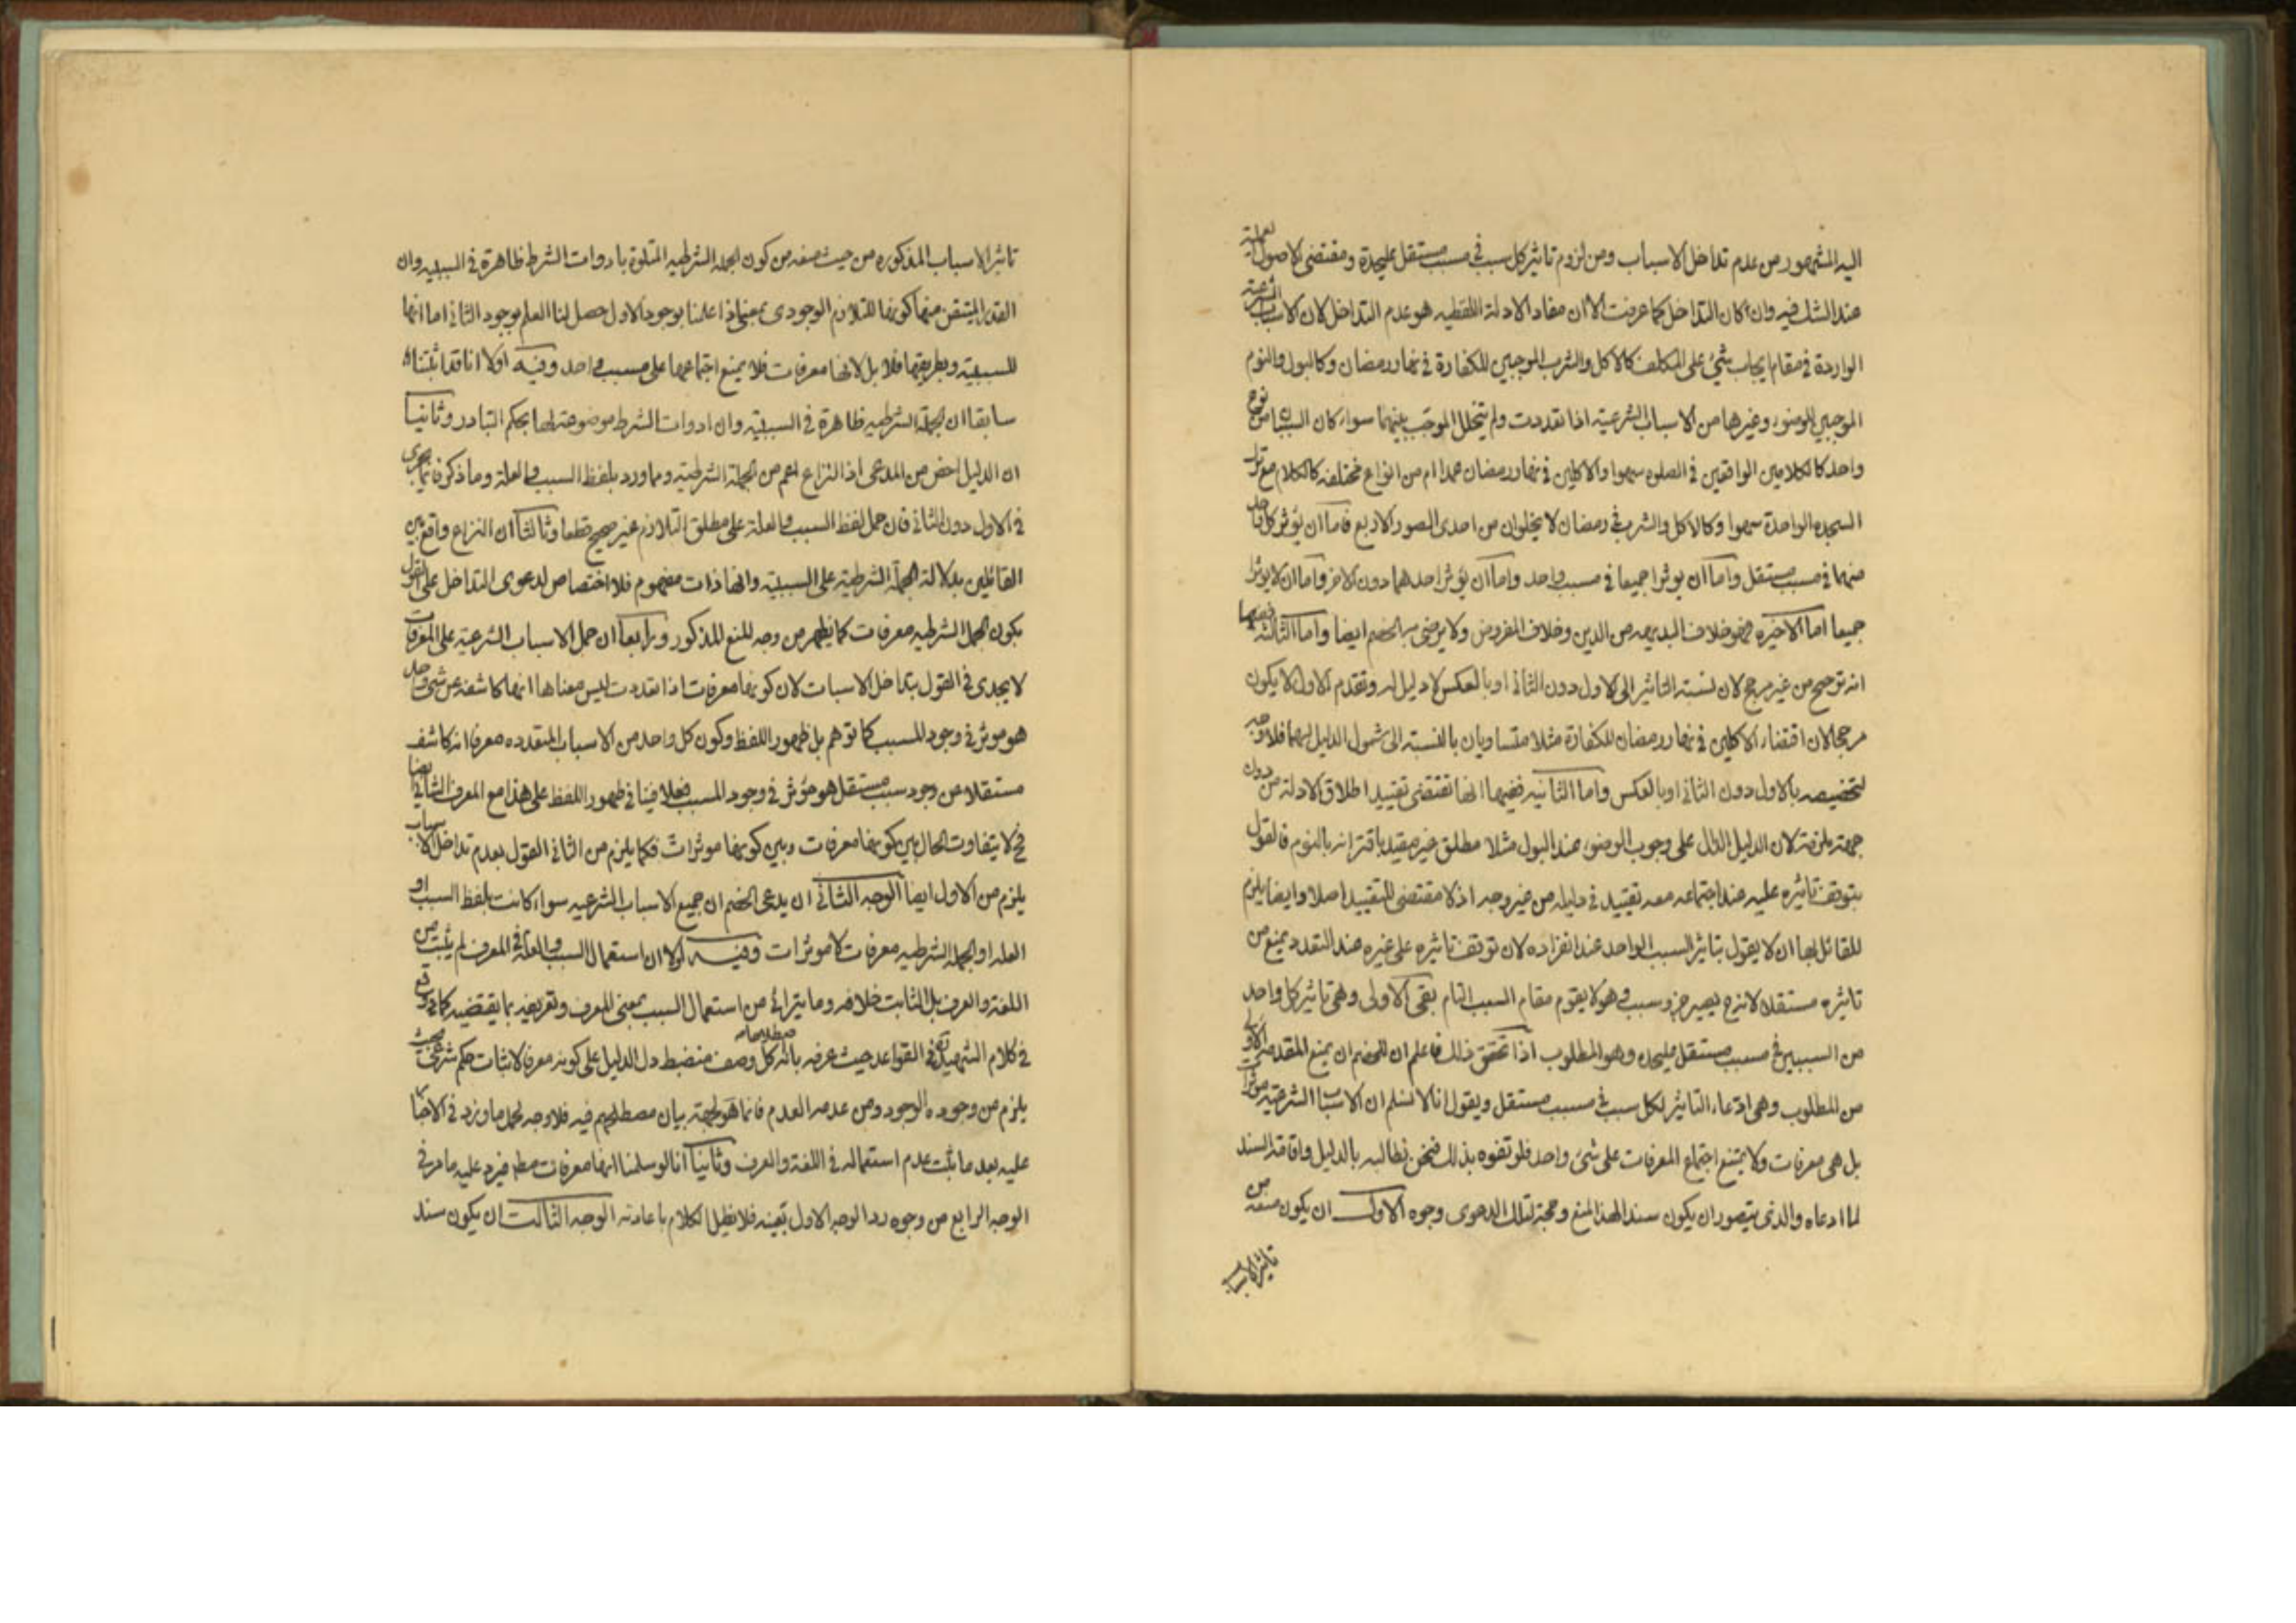 اليه المشهور من عدم تداخل الاسباب ومن لزوم تاثير كل سبب في مسبب مستقل عليحدة ومقتضى الاصول العملية
عند الشك فيه وان كان التداخل كما عرفت الا ان مفاد الادلة اللفظيه هو عدم التداخل لان الاسباب الشرعية
الواردة في مقام ايجاب شيئ على المكلف كالاكل والشرب الموجبين للكفارة في نهار رمضان وكالبول والنوم
الموجبين للوضوء وغيرها من الاسباب الشرعية اذا تعددت ولم يتخلل الموجب بينهما سواء كان السببان من نوع
واحد كالكلامين الواقعين في الصلوه سهوا والاكلين في نهار رمضان عمدا ام من انواع مختلفه كالكلام مع ترك
السجده الواحدة سهوا وكالاكل والشرب في رمضان لا يخلوان من احدى الصور الاربع فاما ان يؤثر كل واحد
منهما في مسبب مستقل واما ان يوثرا جميعا في مسبب واحد واما ان يؤثر احدهما دون الاخر واما ان لا يوثرا
جميعا اما الاخيره فهو خلاف البديهه من الدين وخلاف المفروض ولا يرضى به الخصم ايضا واما الثالثه ففيها
انه ترجيح من غير مرجح لان نسبة التاثير الى الاول دون الثاني او بالعكس لا دليل له وتقدم الاول لا يكون
مرجحا لان اقتضاء الاكلين في نهار رمضان للكفارة مثلا متساويان بالنسبة الى شمول الدليل لهما فلا وجه
لتخصيصه بالاول دون الثاني او بالعكس واما الثانيه ففيها انها تقتضى تقييد اطلاق الادلة من دون
جهة ملزمة لان الدليل الدال على وجوب الوضوء عند البول مثلا مطلق غير مقيد باقترانه بالنوم فالقول
بتوقف تاثيره عليه عند اجتماعه معه تقييد في دليله من غير وجه اذ لا مقتضى للتقييد اصلا وايضا يلزم
للقائل بها ان لا يقول بتاثير السبب الواحد عند انفراده لان توقف تاثيره على غيره عند التعدد يمنع من
تاثيره مستقلا لانه ح يصير جزء سبب وهو لا يقوم مقام السبب التام بقى الاولى وهي تاثير كل واحد
من السببين في مسبب مستقل عليحده وهو المطلوب اذا تحقق ذلك فاعلم ان للخصم ان يمنع المقدمه الاولى
من المطلوب وهي ادعاء التاثير لكل سبب في مسبب مستقل ويقول انا لا نسلم ان الاسباب الشرعية موثرات
بل هي معرفات ولا يمتنع اجتماع المعرفات على شئ واحد فلو تفوه بذلك فنحن نطالبه بالدليل واقامة السند
لما ادعاه والذى يتصور ان يكون سندا لهذا المنع وحجة لتلك الدعوى وجوه الاول ان يكون منعه من
تاثير الاسباب
تاثير الاسباب المذكوره من حيث منعه من كون الجمله الشرطيه المتلوة بادوات الشرط ظاهرة في السببيه وان
القدر المتيقن منها كونها للتلازم الوجودى بمعنى اذا علمنا بوجود الاول حصل لنا العلم بوجود الثاني اما انها
للسببية وبطريقها فلا بل لانها معرفات فلا يمنع اجتماعها على مسبب واحد وفيه اولا انا قد اثبتنا
سابقا ان الجملة الشرطيه ظاهرة في السببية وان ادوات الشرط موضوعة لها بحكم التبادر وثانيا
ان الدليل اخص من المدعى اذ النزاع اعم من الجملة الشرطية ومما ورد بلفظ السبب والعلة وما ذكر فانما يجرى
في الاول دون الثاني فان حمل لفظ السبب والعلة على مطلق التلازم غير صحيح قطعا وثالثا ان النزاع واقع بين
القائلين بدلالة الجملة الشرطية على السببية وانها ذات مفهوم فلا اختصاص لدعوى التداخل على القول
بكون الجمل الشرطيه معرفات كما يظهر من وجه المنع المذكور ورابعا ان حمل الاسباب الشرعية على المعرفات
لا يجدى في القول بتداخل الاسباب لان كونها معرفات اذا تعددت ليس معناها انها كاشفه عن شئ واحد
هو موثر في وجود المسبب كما توهم بل ظهور اللفظ وكون كل واحد من الاسباب المتعدده معرفا انه كاشف
مستقلا من وجود سبب مستقل هو مؤثر في وجود المسبب فعلا فينافي ظهور اللفظ على هذا مع المعرف الثاني ايضا
فح لا يتفاوت الحال بين كونها معرفات وبين كونها موثرات فكما يلزم من الثاني القول بعدم تداخل الاسباب
يلزم من الاول ايضا الوجه الثاني ان يدعى الخصم ان جميع الاسباب الشرعيه سواء كانت بلفظ السبب او
العله او الجمله الشرطيه معرفات لا موثرات وفيه اولا ان استعمال السبب والعلة في المعرف لم يثبت من
اللغة والعرف بل الثابت خلافه وما يترائ من استعمال السبب بمعنى المعرف وتعريفه بما يقتضيه كما وقع
في كلام الشهيد في القواعد حيث عرفه بانه كل وصف منضبط دل الدليل على كونه معرفا لاثبات حكم شرعي بحيث
يلزم من وجوده الوجود ومن عدمه العدم فانما هو لجهة بيان مصطلحهم فيه فلا وجه لحمل ما ورد في الاخبار
عليه بعد ما ثبت عدم استعماله في اللغة والعرف وثانيا انا لو سلمنا انها معرفات مطلقا فيرد عليه ما مر في
الوجه الرابع من وجوه رد الوجه الاول بعينه فلا نطيل الكلام باعادته الوجه الثالث ان يكون سند